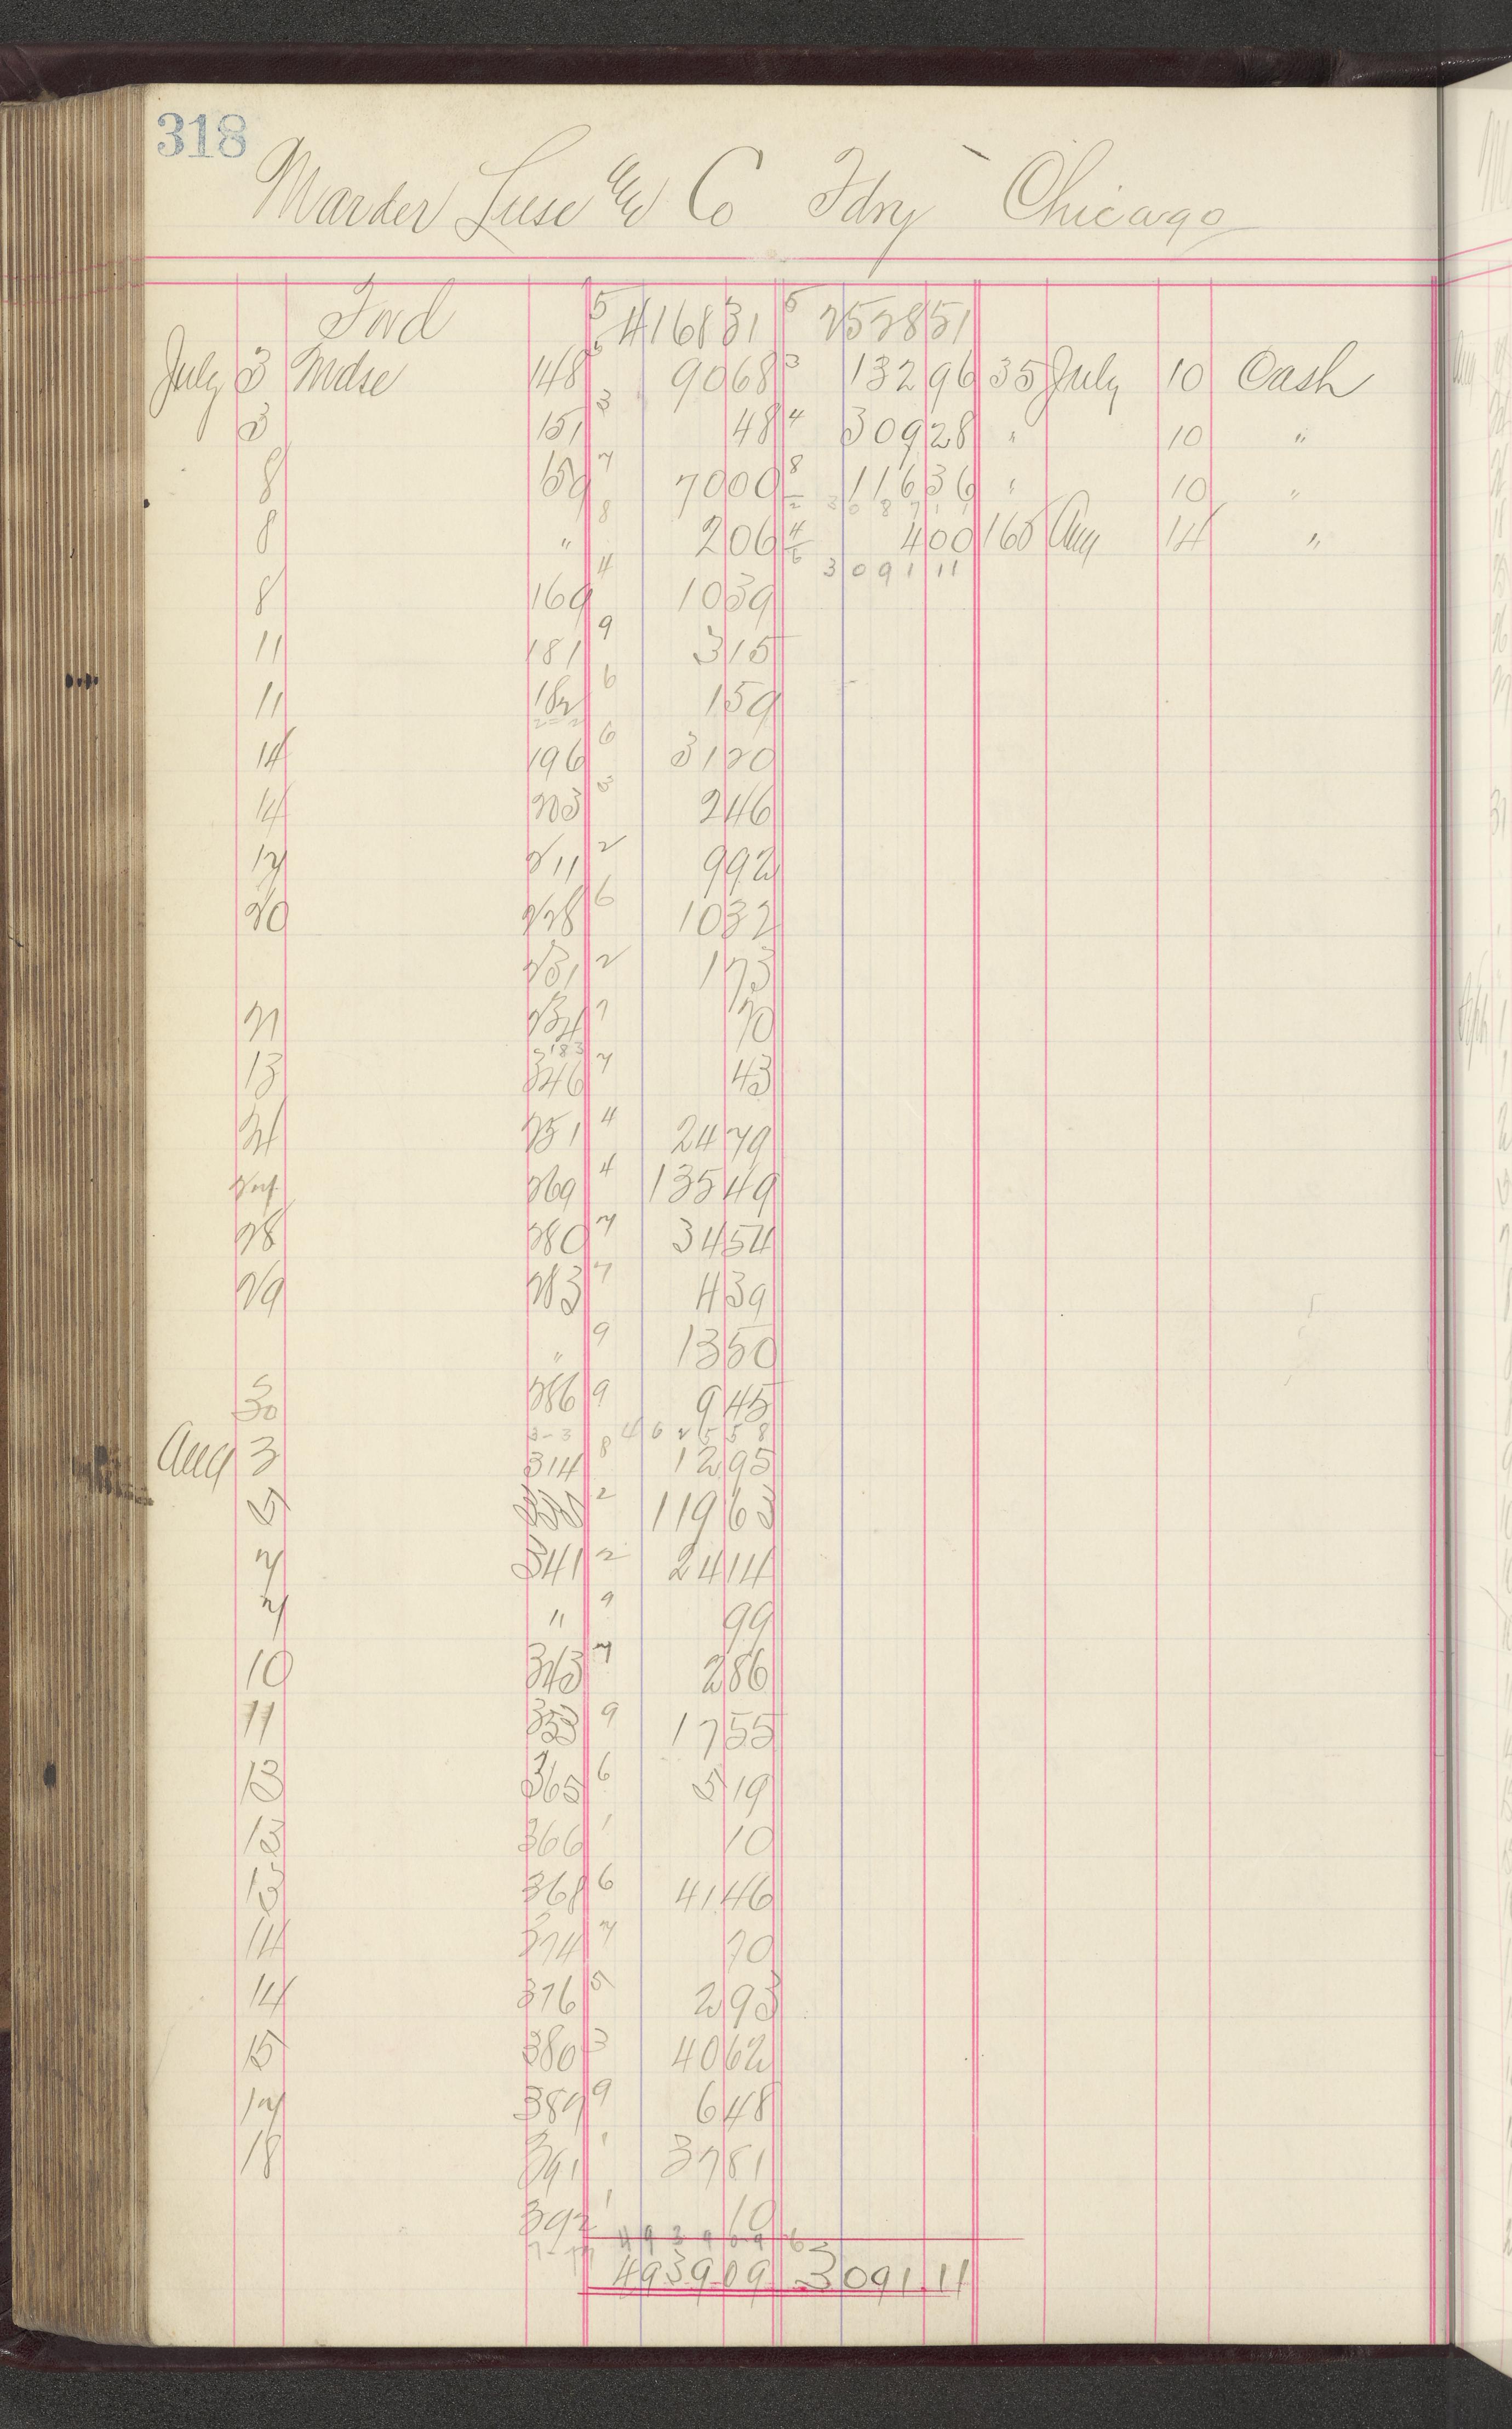 318
Marder Luse & Co Fdry Chicago
Fwd 5 4168 31 5 2528 51
July 3 Mdse 148 5 90 68 3 132 96 35 July 10 Cash
3 151 3 48 4 309 28 " 10 "
8 159 7 70 00 8 116 36 " 10 "
8 " 8 2 06 4 4 00 165 Aug 14 "
3091 11
8 169 4 10 39
11 181 9 3 15
11 182 6 1 59
14 196 6 31 20
14 203 3 2 46
17 211 2 9 92
20 228 6 10 32
231 2 1 73
21 234 7 70
183
13 246 7 43
21 251 4 24 79
269 4 135 49
28 280 7 34 54
29 283 7 4 39
" 9 13 50
30 286 9 9 45
4625 58
Aug 3 314 8 12 95
5 330 2 119 63
7 341 2 24 14
7 " 9 99
10 343 7 2 86
11 353 9 17 55
13 365 6 5 19
13 366 1 10
13 368 6 41 46
14 374 7 70
14 376 5 2 93
15 380 3 40 62
17 389 9 6 48
18 391 1 37 81
392 1 10
4939 09 6
4939 09 3091 11